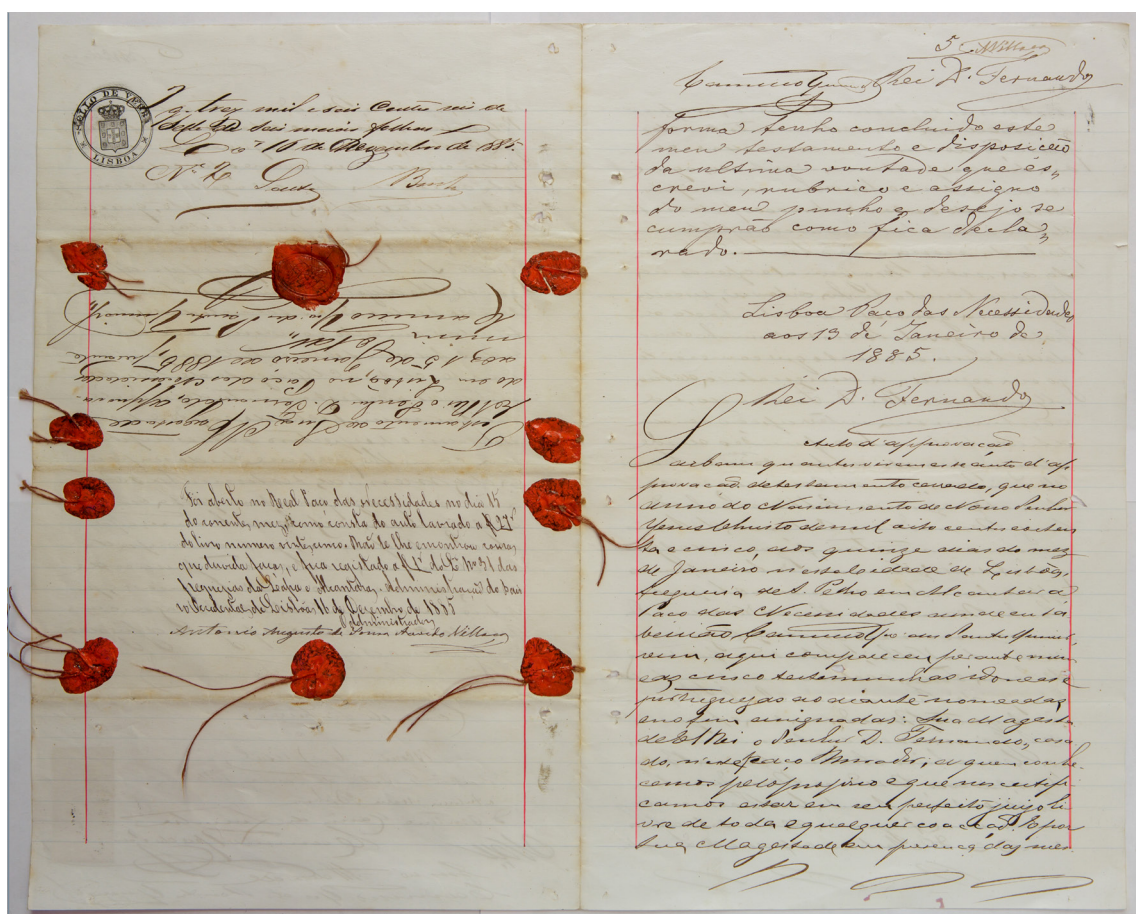 SELLO DE VERBA
LISBOA
tres mil e seis centos reis de
sello seis meias folhas
10 de Dezembro de 1885
Nº 2
Testamento de Sua Magestade
El Rei o Senhor D. Fernando, approva
do em Lisboa, no Paço das Necessidades
aos 15 de Janeiro de 1885, perante
mim
Foi aberto no Real Paço das Necessidades no dia 15
do corrente mez, como consta do auto lavrado a f. 21
do livro numero vinte e cinco. Não se lhe encontrou cousa
que duvida faça, e fica registado a f. 1 do Lº Nº 31 das
freguezias da Lapa e Alcantara. Administração do bair
ro Occidental de Lisboa, 16 de Dezembro de 1885
O Administrador
Antonio Augusto de Sousa Azevedo Villaça
5 Villaça
Rei D. Fernando
forma tenho concluido este
meu testamento e disposição
da ultima vontade que es,,
crevi, rubrico e assigno
do meu punho e desejo se
cumprão como fica decla,,
rado.
Lisboa Paço das Necessidades
aos 13 de Janeiro de
1885.
Rei D. Fernando
Auto d'approvação
Saibam quantos virem este auto d'ap
provação de testamento cerrado, que no
anno do Nascimento de Nosso Senhor
Jesus Christo de mil oito centos e oiten
ta e cinco, aos quinze dias do mez
de Janeiro n'esta cidade de Lisboa,
freguezia de S. Pedro em Alcantara
Paço das Necessidades aonde eu ta
bellião
vim, aqui compareceu perante mim
e as cinco testemunhas idoneas e
portuguezas ao diante nomeadas
e no fim assignadas: Sua Magesta
de El Rei o Senhor D. Fernando, casa
do, n'este Paço Morador; a quem conhe
cemos pelo proprio e que nos certifi
camos estar em seu perfeito juizo li
vre de toda e qualquer coacção. E por
Sua Magestade em presença das mes